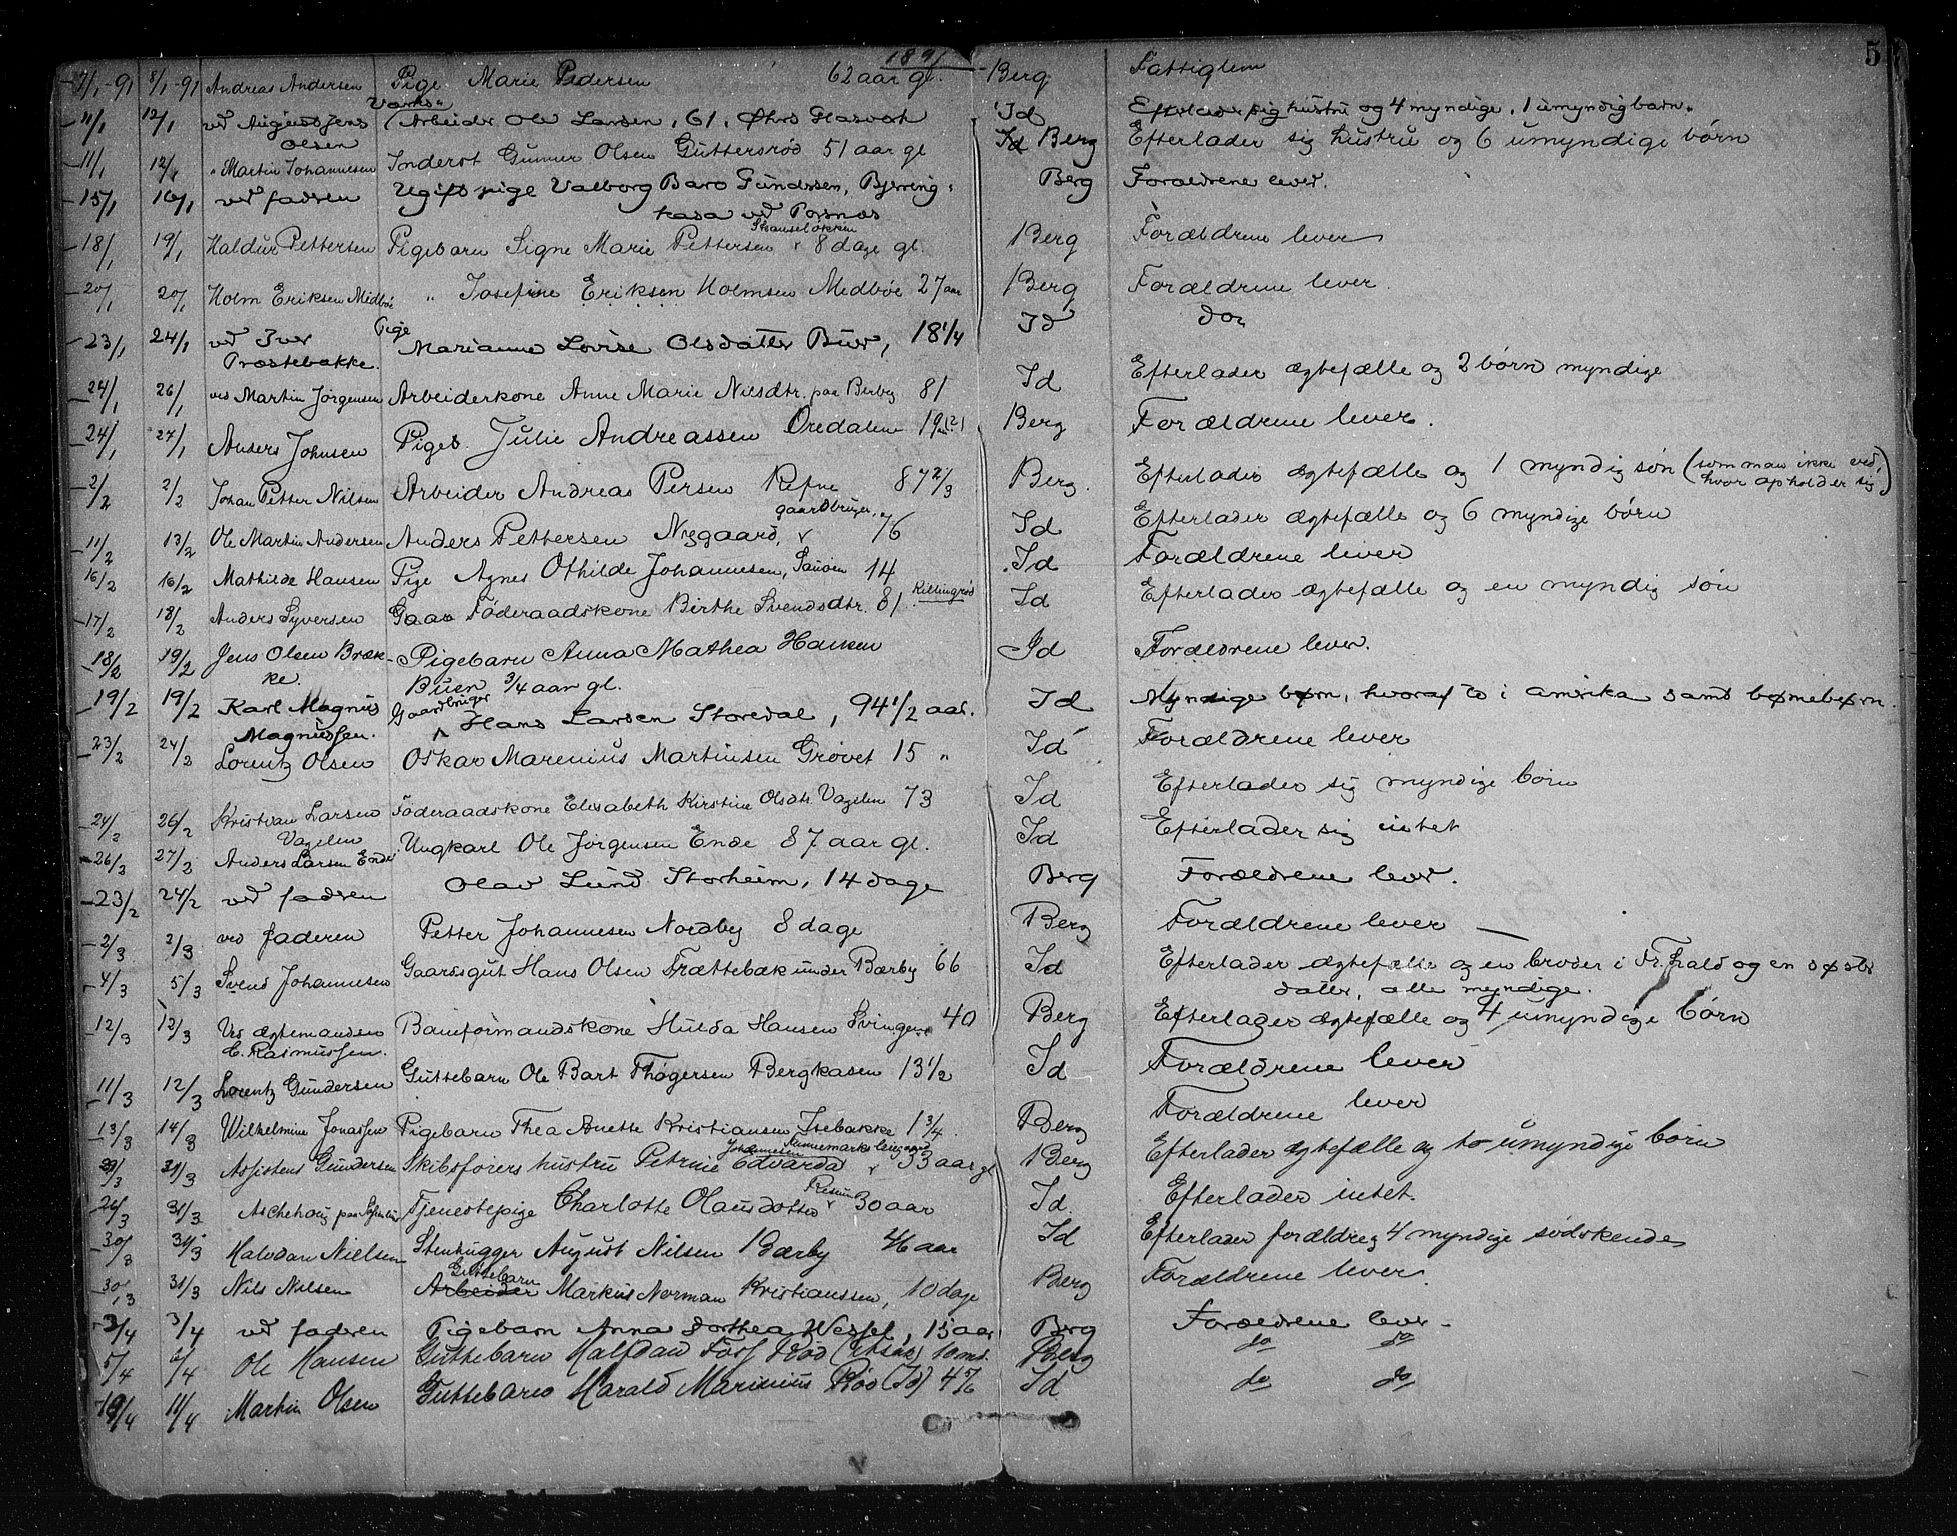 1891
5
7/1-91 8/1-91 Andreas Andersen Pige Marie Pedersen 62 aar gl. Berg Fattiglem
11/1 12/1 ved Augustjens Olsen Arbeider Ole Larsen, 61, Id Efterlader sig hustru og 4 myndige, 1 umyndig barn.
11/1 12/1 " Martin Johannesen Inderst Gunner Olsen Guttersrød 51 aar gl Id Berg Efterlader sig hustru og 6 umyndige børn
15/1 16/1 ved fadren Ugift pige Valborg Baro Gundersen, Bjerring-
kasa ved Torsnæs Berg Forældrene lever.
18/1 19/1 Haldur Pettersen Pigebarn Signe Marie Pettersen Strauseløkken 8 dage gl. Berg Forældrene lever
20/1 20/1 Holm Eriksen Medbøe " Josefine Eriksen Holmsen Medbøe 27 aar Berg Forældrene lever.
23/1 24/1 ved Iver Præstebakke. Pige Marianne Lovise Olsdatter Buer, 18 1/4 Id do
24/1 26/1 ved Martin Jørgensen Arbeiderkone Anne Marie Nilsdtr. paa Berby 81 Id Efterlader ægtefælle og 2 børn myndige
24/1 27/1 Anders Johnsen Pigeb. Julie Andreassen Oredalen 19 Berg Forældrene lever.
2/2 2/2 Johan Petter Nilsen Arbeider Andreas Persen Refne 87 2/3 Berg. Efterlader ægtefælle og 1 myndig søn (som man ikke ved,
hvor opholder sig)
11/2 13/2 Ole Martin Andersen Anders Pettersen Nygaard, gaardbruger. 76 Id Efterlader ægtefælle og 6 myndige børn
16/2 16/2 Mathilde Hansen Pige Agnes Othilde Johannesen, Sauøen 14 Id Forældrene lever
17/2 18/2 Anders Syversen Føderaadskone Birthe Svendsdtr. 81 Killingrød Id Efterlader ægtefælle og en myndig søn
18/2 19/2 Jens Olsen Bræk-
ke. Pigebarn Anna Mathea Hansen
Buen 3/4 aar gl. Id Forældrene lever.
19/2 19/2 Karl Magnus
Magnussen. Gaardbruger Hans Larsen Storedal, 94 1/2 aar. Id Myndige børn, hvoraf to i amerika samt børnebørn.
23/2 24/2 Lorentz Olsen Oskar Marenius Martinsen Grøvet 15 " Id Forældrene lever
24/2 26/2 Kristian Larsen
Vagelen Føderaadskone Elisabeth Kirstine Olsdtr. Vagelen 73 Id Efterlader sig myndige børn
26/2 27/2 Anders Larsen Ende Ungkarl Ole Jørgensen Ende 87 aar gl. Id Efterlader sig intet
23/2 24/2 ved fadren Olav Lund Storheim, 14 dage Berg Forældrene lever.
2/3 2/3 ved faderen Petter Johannesen Nordby 8 dage Berg Forældrene lever
4/3 5/3 Svend Johannesen Gaardsgut Hans Olsen Trættebæk under Bærby 66 Id Efterlader ægtefælle og en broder i Fr.hald og en søster
datter, alle myndige.
12/3 12/3 Ved ægtemanden
C. Rasmussen. Baneformandskone Hulda Hansen 40 Berg Efterlader ægtefælle og 4 umyndige børn
11/3 12/3 Lorentz Gundersen Guttebarn Ole Bart Thøgersen Bergkasen 13 1/2 Id Forældrene lever
13/3 14/3 Wilhelmine Jonassen Pigebarn Thea Anette Kristiansen Isebakke 1 3/4 Berg Forældrene lever
29/3 31/3 Assistens Gundersen Skibsførers hustru Petrine Edvarda Johannesen 33 aar gl Berg Efterlader ægtefælle og to umyndige børn
26/3 31/3 Aschehoug paa Tjenestepige Charlotte Olausdotter 30 aar Id. Efterlader intet.
30/3 31/3 Halvdan Nielsen Stenhugger August Nilsen Bærby 46 aar Id Efterlader forældre, 4 myndige sødskende
30/3 31/3 Nils Nilsen Arbeider Guttebarn Markus Norman Kristianssen, 10 dage Berg Forældrene lever.
3/4 3/4 ved fadren Pigebarn Anna Dorthea Wessel, 15 aar Berg Forældrene lever.
5/4 6/4 Ole Hansen Guttebarn Halfdan Rød 10 md. Berg do do
10/4 11/4 Martin Olsen Guttebarn Harald Marinius Rød (Id) 4 Id do do